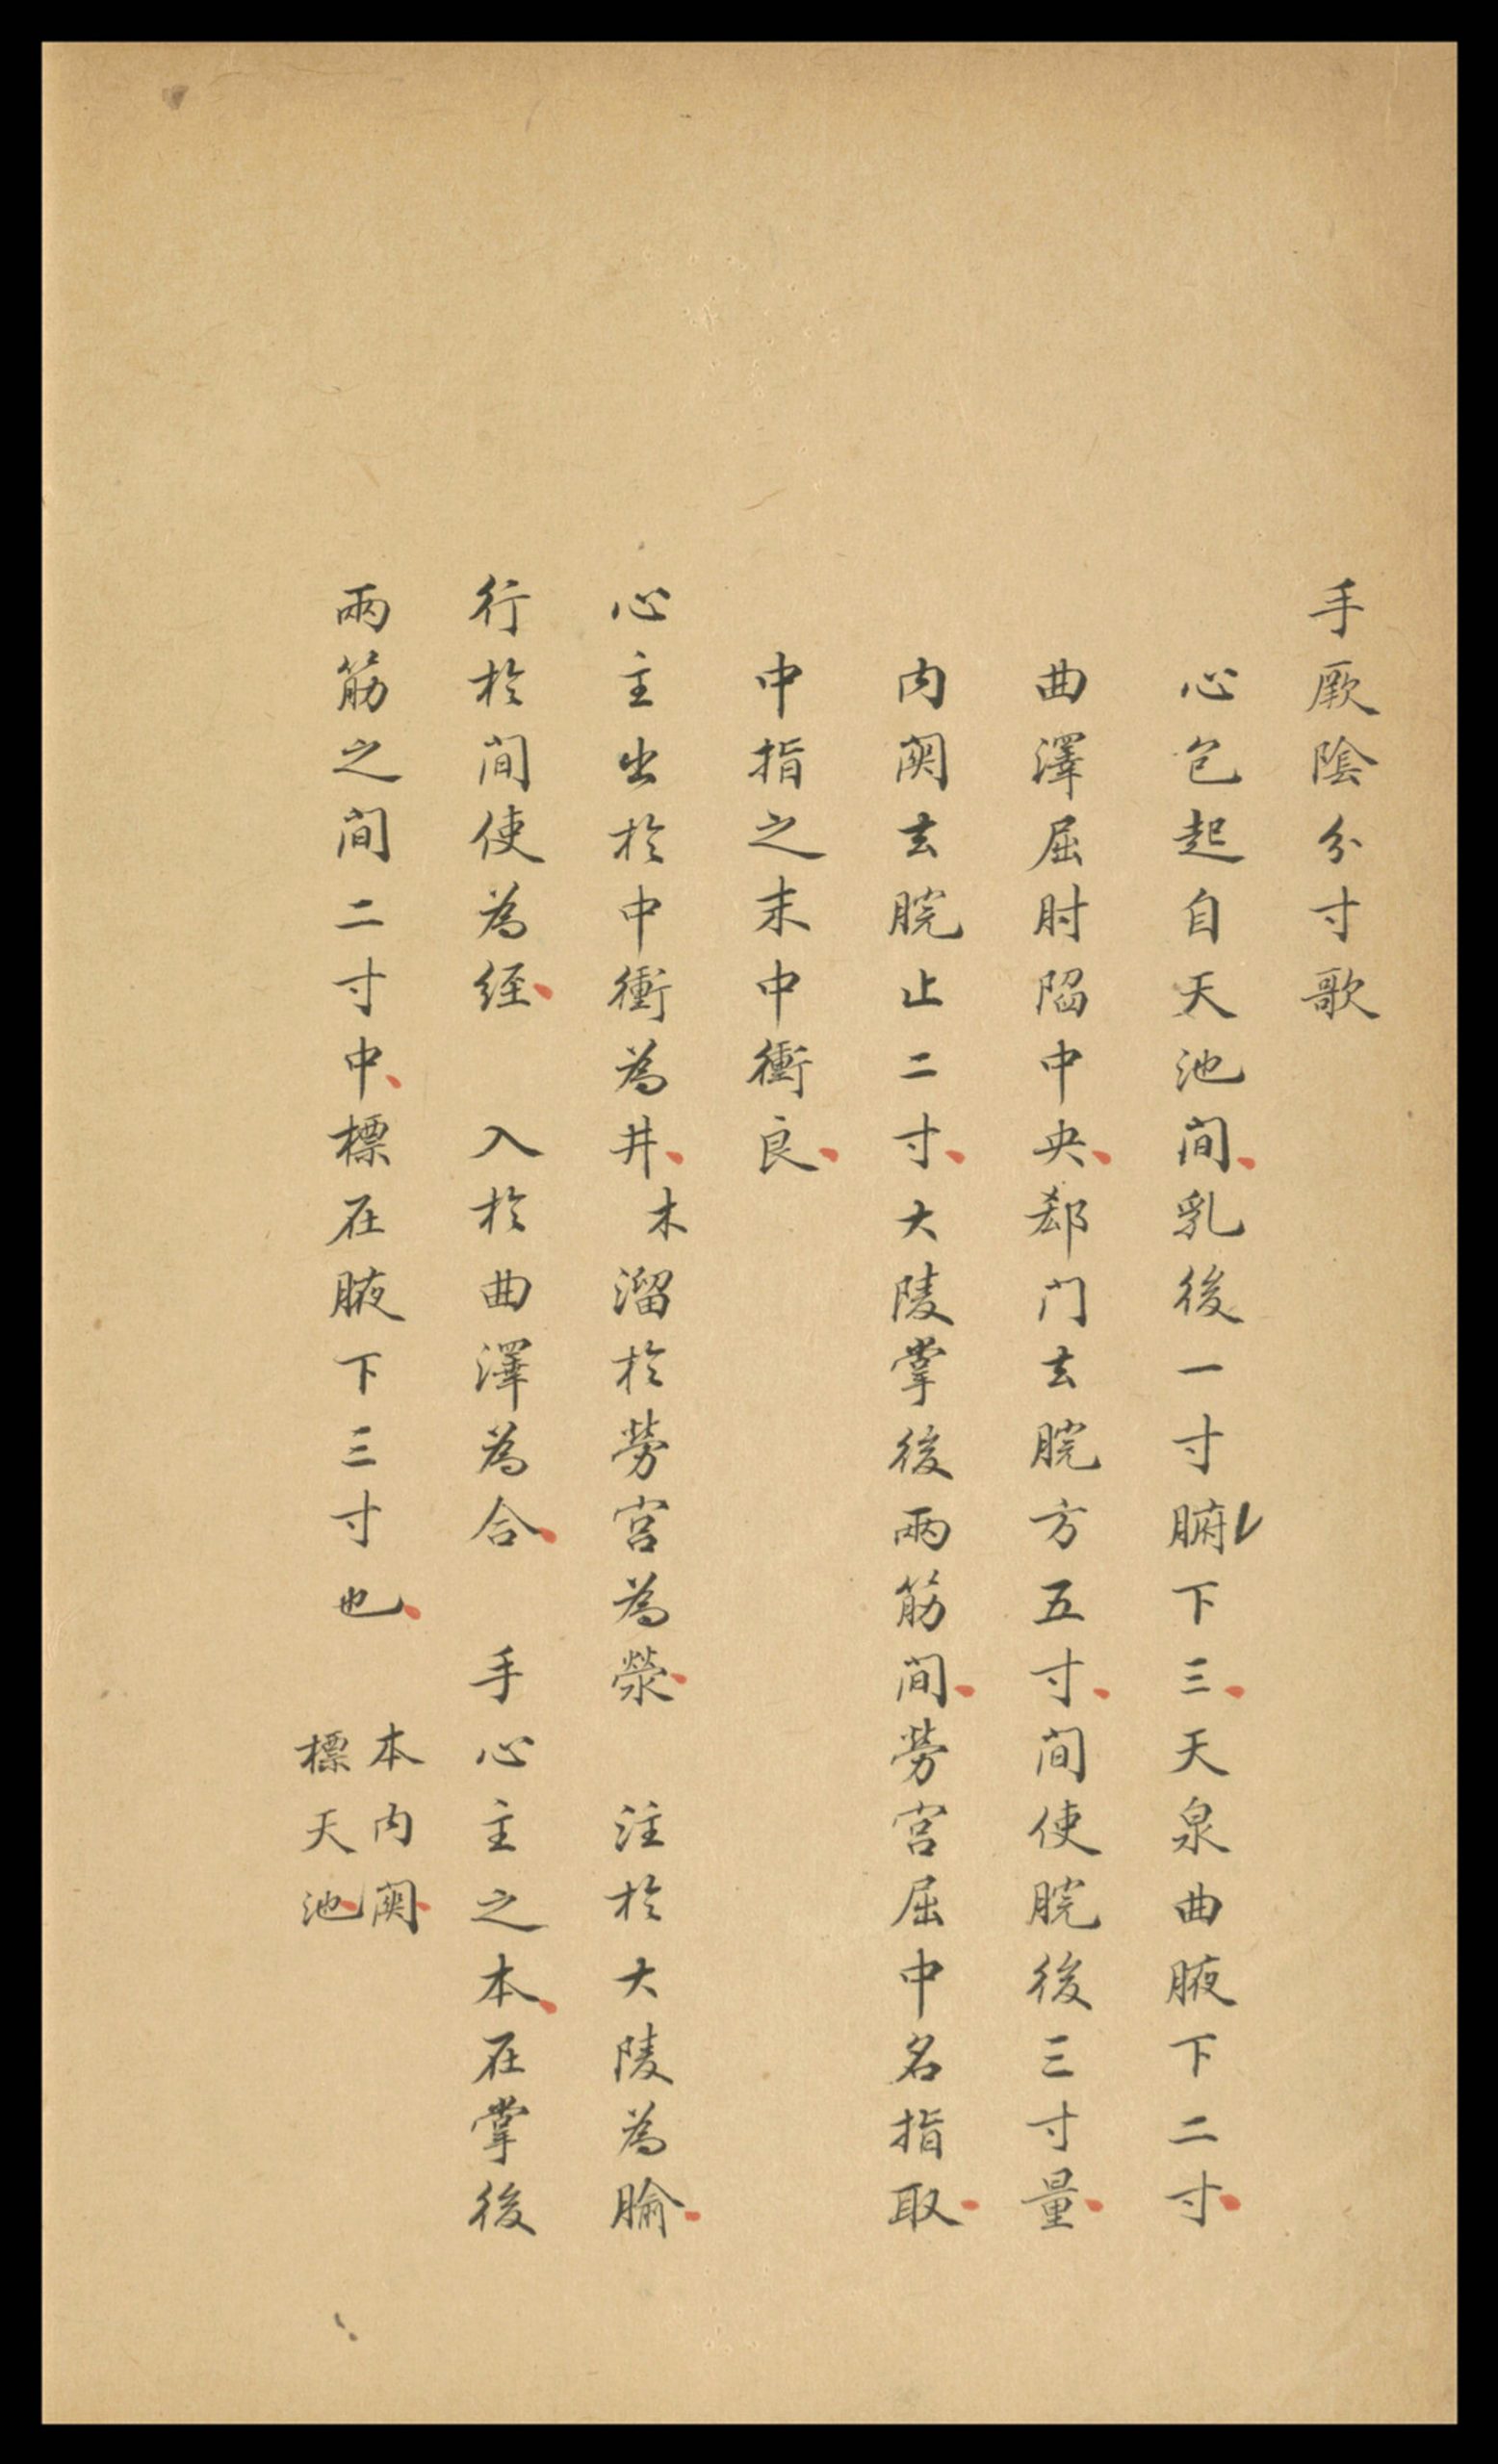 手厥陰分寸歌
心包起自天池間、乳後一寸腑下三、天泉曲腋下二寸、
曲澤屈肘陷中央、郄门去腕方五寸、間使腕後三寸量、
内関去腕止二寸、大陵掌後兩筋間、勞宮屈中名指取、
中指之末中衝良、
心主出於中衝為井、木溜於勞宮為滎、 注於大陵為腧、
行於間使為経、 入於曲澤為合、 手心主之本、在掌後
兩筋之間二寸中、標在腋下三寸也、
本内関、
標天池、